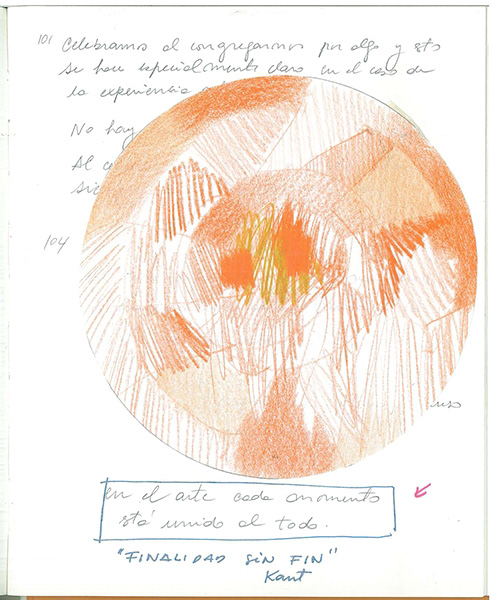 101 Celebramos al congregarnos por algo y esto
se hace especialmente claro en el caso de
la experiencia
No hay
Al ce
sie
104
uso
en el arte cada momento
está unido al todo.
"FINALIDAD SIN FIN"
Kant